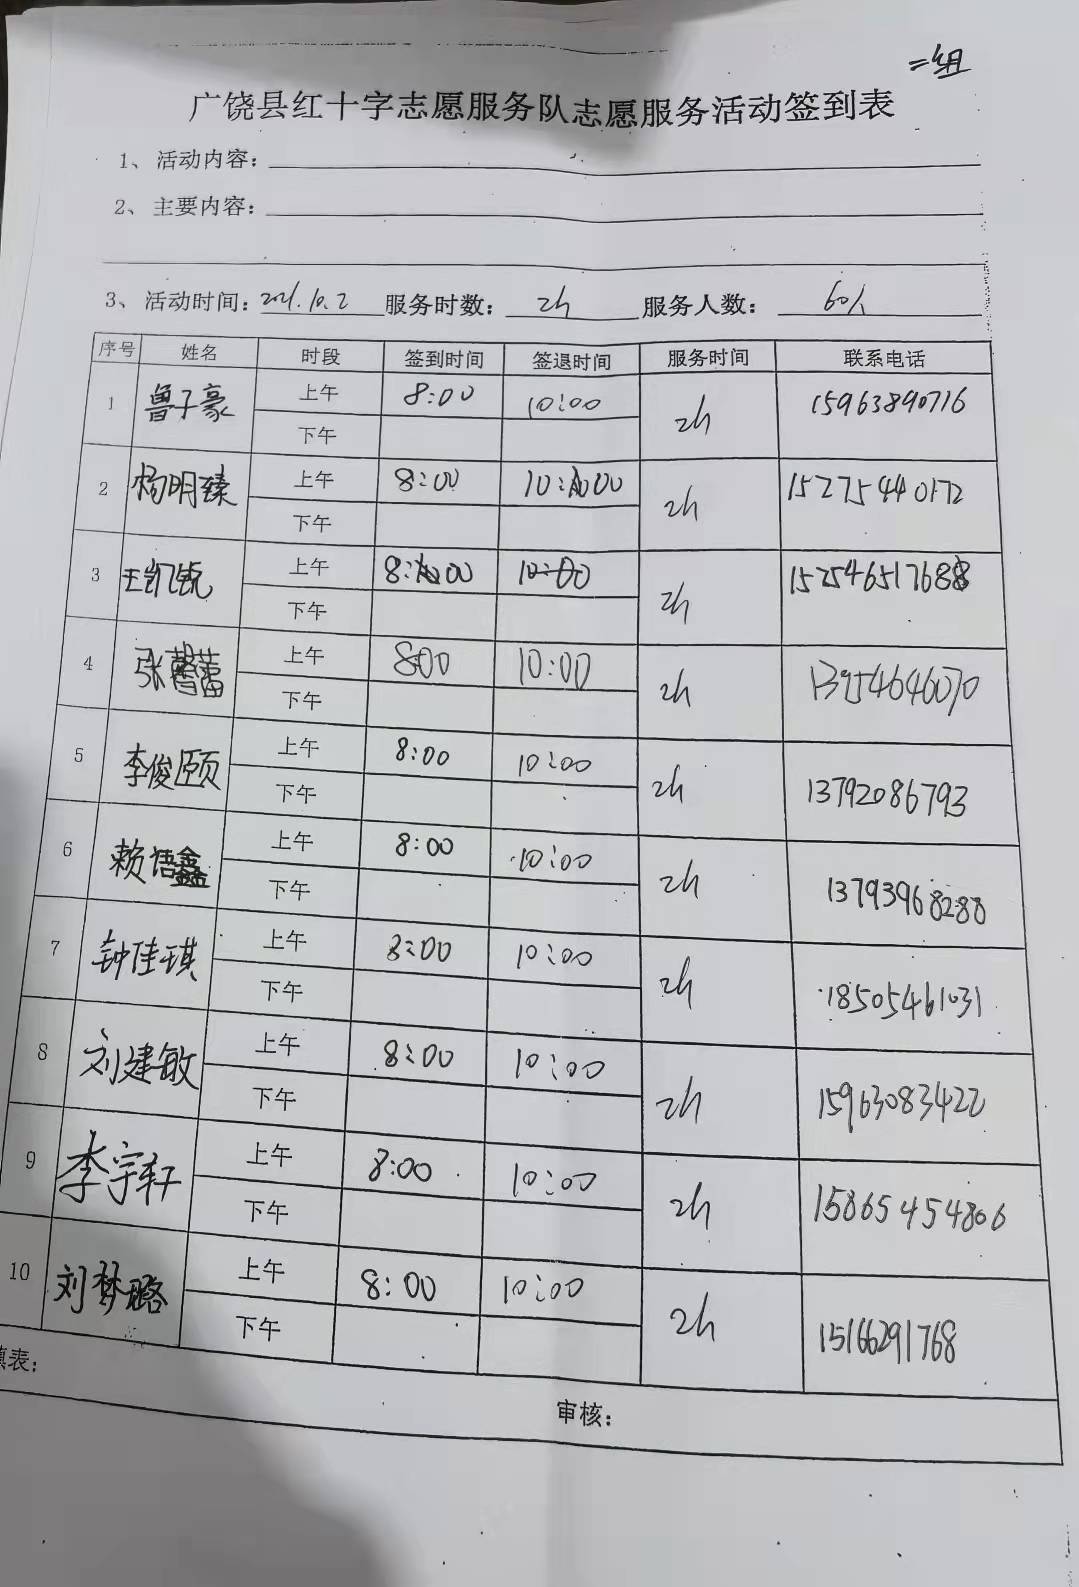 二组
广饶县红十字志愿服务队志愿服务活动签到表
1、活动内容：
2、主要内容：
3、活动时间：2021.10.2 服务时数：2h 服务人数：60人
序号 姓名 时段 签到时间 签退时间 服务时间 联系电话
1 鲁子豪 上午 8:00 10:00 2h 15963890716
下午
2 杨明臻 上午 8:00 10:00 2h 15275440172
下午
3 王凯锐 上午 8:00 10:00 2h
下午
4 张馨蕾 上午 8:00 10:00 2h 13954646070
下午
5 李俊颐 上午 8:00 10:00 2h 13792086793
下午
6 赖语鑫 上午 8:00 10:00 2h 13793968288
下午
7 钟佳琪 上午 8:00 10:00 2h 18505461031
下午
8 刘建敏 上午 8:00 10:00 2h 15963083422
下午
9 李宇轩 上午 8:00 10:00 2h 15865454806
下午
10 刘梦璐 上午 8:00 10:00 2h 15166291768
下午
填表：
审核：